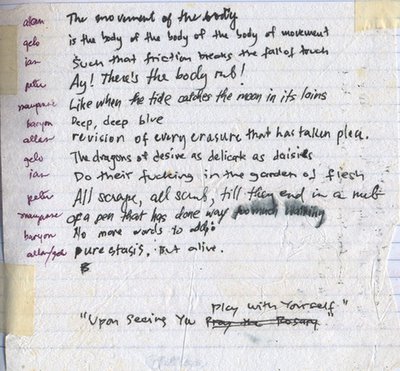 alan The movement of the body
gelo is the body of the body of the body of movement
ian Such that friction breaks the fall of touch
peter Ay! There's the body rub!
Like when the tide catches the moon in its loins
baryon Deep, deep blue
allan revision of every erasure that has taken place.
gelo The dragons of desire as delicate as daisies
ian Do their fucking in the garden of flesh
peter All scrape, all scrub, till they end in a melt
of a pen that has done way too much
baryon No more words to add:
allan/gelo pure stasis. But alive.
Play with Yourself"
"Upon Seeing You Pray the Rosary"